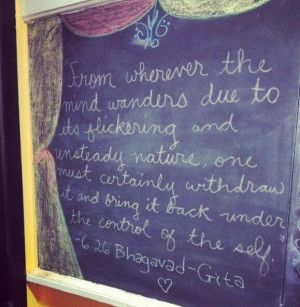 From wherever the
mind wanders due to
its flickering and
unsteady nature, one
must certainly withdraw
it and bring it back under
the control of the self."
-6.26 Bhagavad-Gita